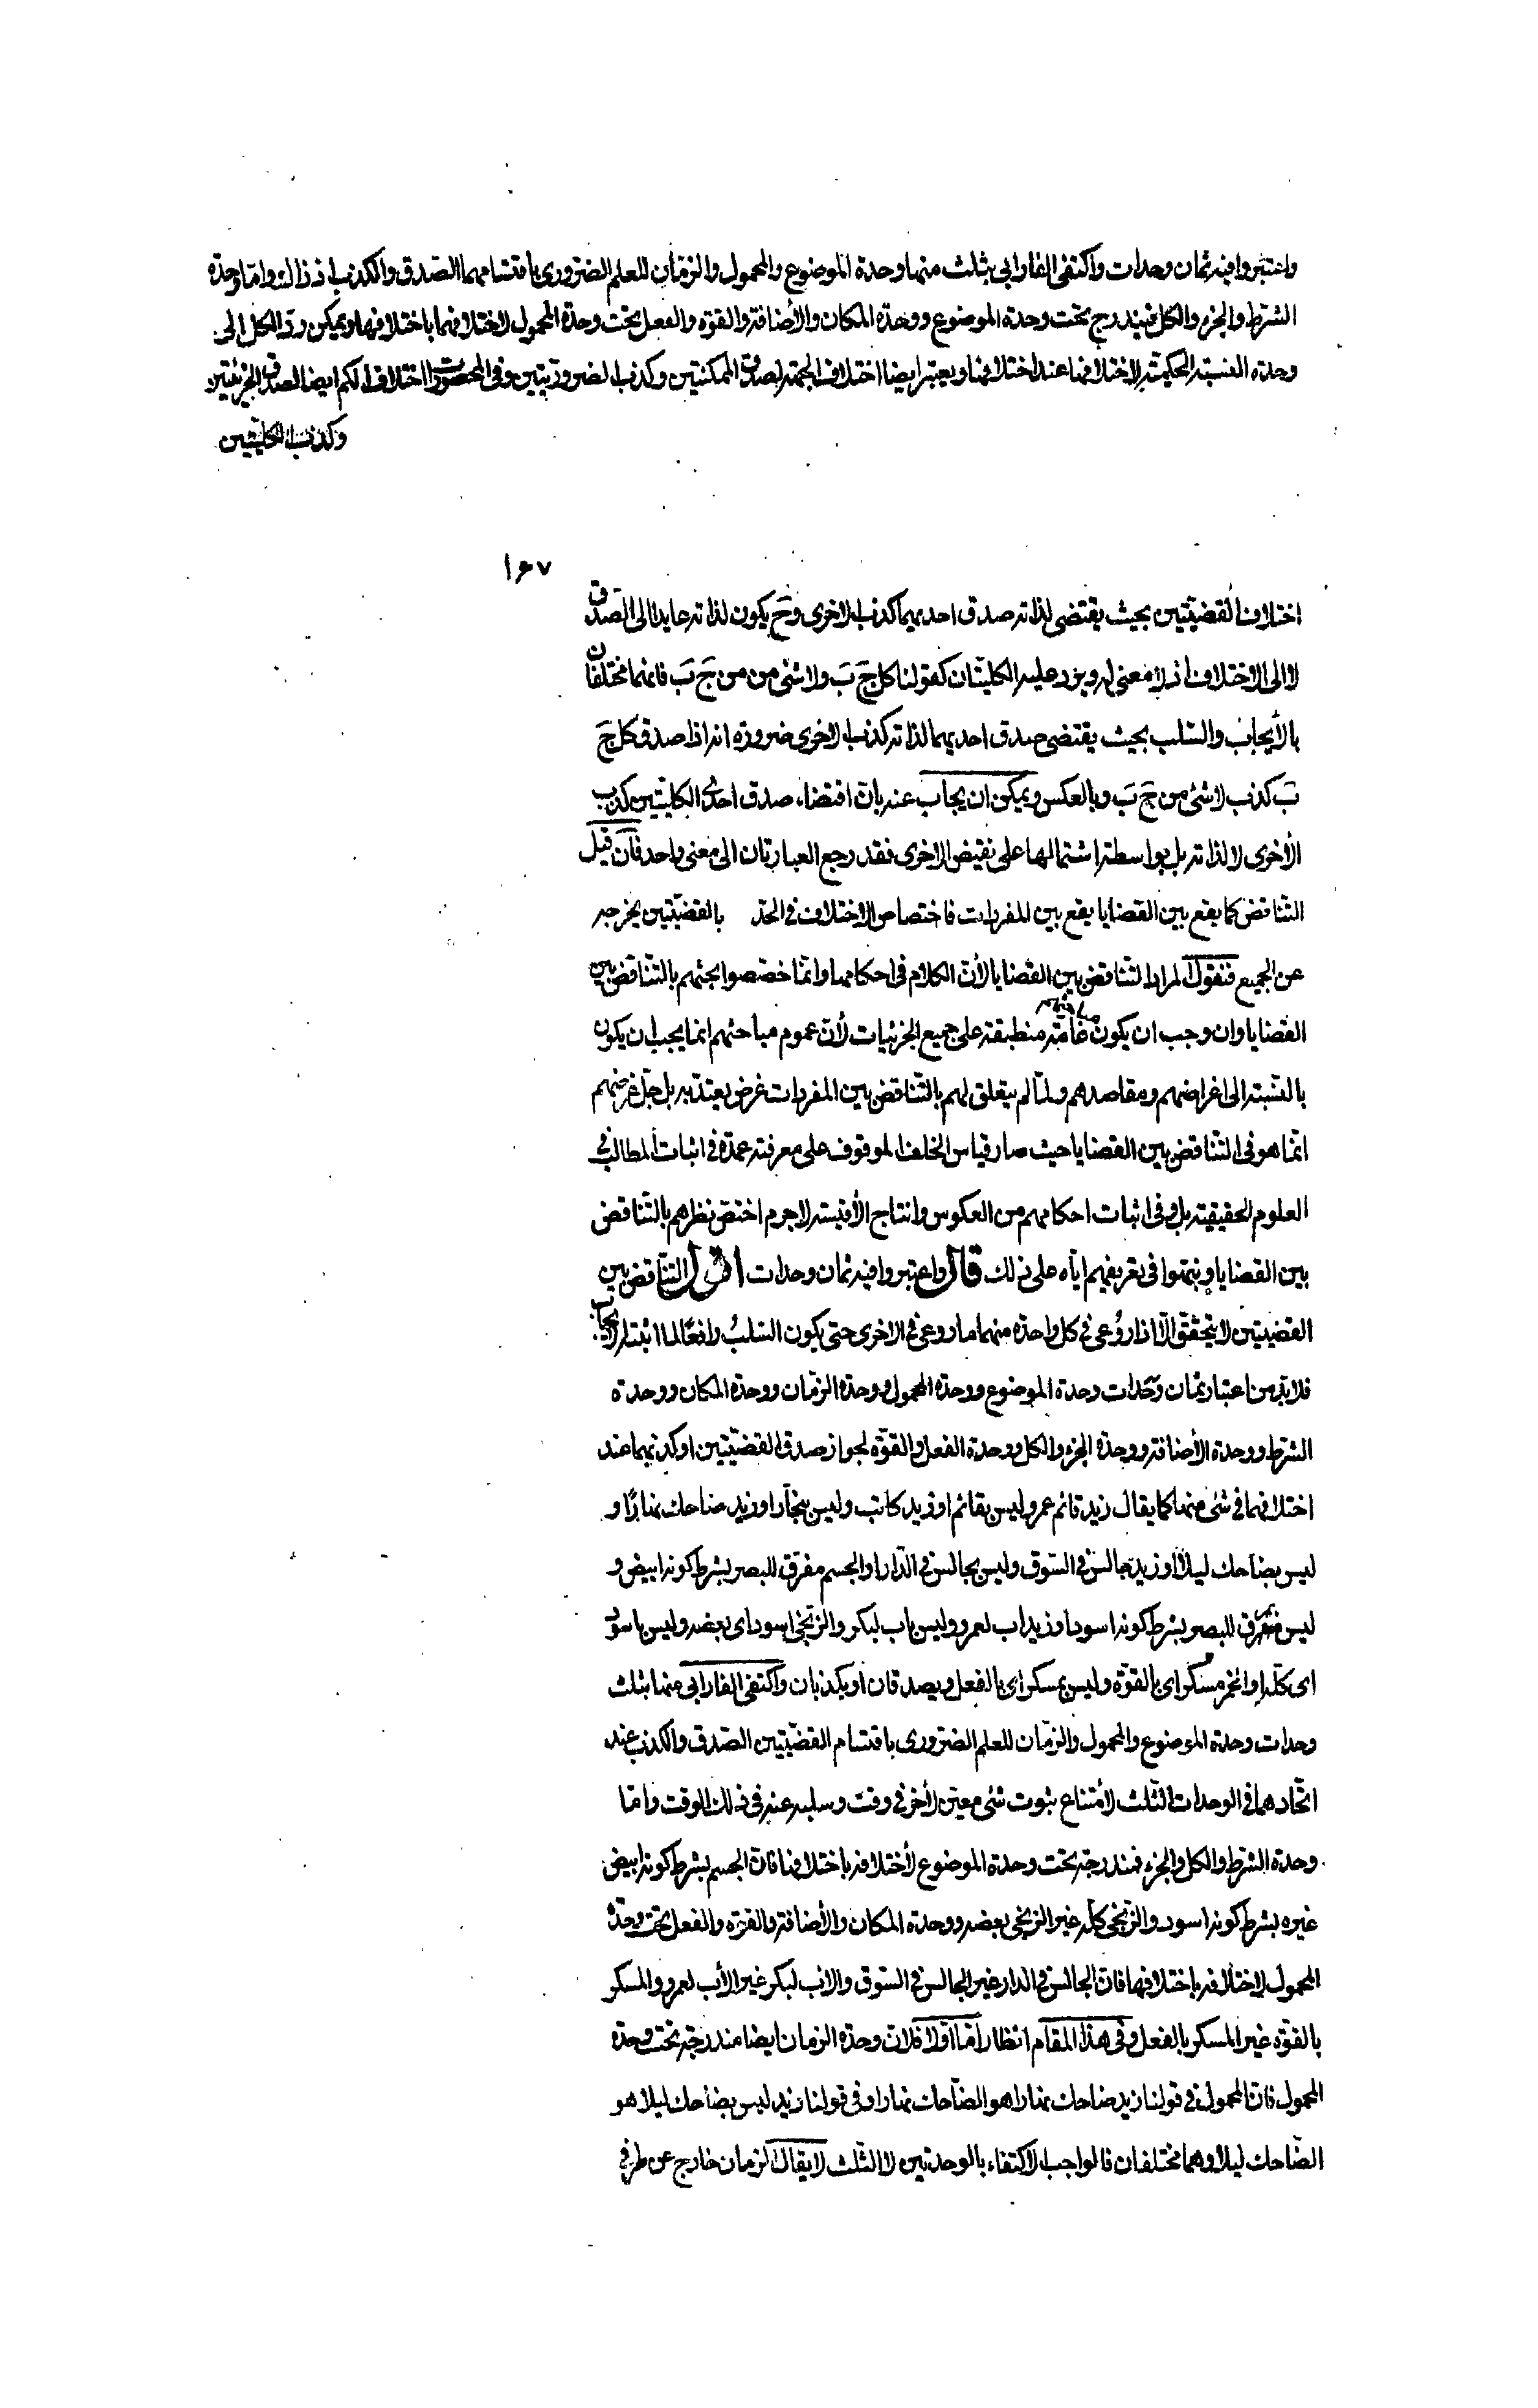 واعتبروا فيه ثمان وحدات واكتفى الفارابى بثلث منها وحدة الموضوع والمحمول والزمان للعلم الضرورى باقتسامهما الصدق والكذب اذ ذاك واما وحدة
الشرط والجزء والكل فيندرج تحت وحدة الموضوع ووحدة المكان والأضافة والقوة والفعل تحت وحدة المحمول لاختلافهما باختلافها ويمكن رد الكل الى
وحدة النسبة الحكمية لاختلافها عند اختلافها ويعتبر ايضا اختلاف الجهة لصدق الممكنتين وكذب الضروريتين وفى المحصورات اختلاف الكم ايضا لصدق الجزئيتين
وكذب الكليتين
١۶٧
اختلاف القضيتين بحيث يقتضى لذاته صدق احديهما كذب الاخرى وح يكون لذاته عايدا الى الصدق
لا الى الاختلاف اذ لا معنى له ويرد عليه الكليتان كقولنا كل ج ب ولا شئ من من ج ب فانهما مختلفان
بالأيجاب والسلب بحيث يقتضى صدق احديهما لذاته كذب الاخرى ضرورة انه اذا صدق كل ج
ب كذب لا شئ من ج ب وبالعكس ويمكن ان يجاب عنه بان اقتضاء صدق احدى الكليتين كذب
الأخرى لا لذاته بل بواسطة اشتمالها على نقيض الاخرى فقد رجع العبارتان الى معنى واحد فان قيل
التناقض كما يقع بين القضايا يقع بين المفردات فاختصاص الاختلاف فى الحد بالقضيتين يخرجه
عن الجميع فنقول المراد التناقض بين القضايا لأن الكلام فى احكامها وانما خصصوا بحثهم بالتناقض بين
القضايا وان وجب ان يكون مباحثهم عامة منطبقة على جميع الجزئيات لأن عموم مباحثهم انما يجب ان يكون
بالنسبة الى اغراضهم ومقاصدهم ولما لم يتعلق لهم بالتناقض بين المفردات غرض يعتد به بل جل غرضهم
انما هو فى التناقض بين القضايا حيث صار قياس الخلف الموقوف على معرفته عمدة فى اثبات المطالب فى
العلوم الحقيقية بل وفى اثبات احكامهم من العكوس وانتاج الأقيسة لا جرم اختص نظرهم بالتناقض
بين القضايا ونبهوا فى تعريفهم اياه على ذلك قال واعتبروا فيه ثمان وحدات اقول التناقض بين
القضيتين لا يتحقق الا اذا روعى فى كل واحدة منهما ما روعى فى الاخرى حتى يكون السلب رافعا لما اثبته الايجاب
فلا بد من اعتبار ثمان وحدات وحدة الموضوع ووحدة المحمول ووحدة الزمان ووحدة المكان ووحدة
الشرط ووحدة الأضافة ووحدة الجزء والكل ووحدة الفعل والقوة لجواز صدق القضيتين او كذبهما عند
اختلافهما فى شئ منها كما يقال زيد قائم عمرو ليس بقائم او زيد كاتب وليس بنجار او زيد ضاحك نهارا و
ليس بضاحك ليلا او زيد جالس فى السوق وليس بجالس فى الدار او الجسم مفرق للبصر بشرط كونه ابيض و
ليس بمفرق للبصر بشرط كونه اسود او زيد اب لعمرو وليس باب لبكر والزنجى اسود اى بعضه وليس باسود
اى كله او الخمر مسكر اى بالقوة وليس بمسكر اى بالفعل ويصدقان او يكذبان واكتفى الفارابى منها بثلث
وحدات وحدة الموضوع والمحمول والزمان للعلم الضرورى باقتسام القضيتين الصدق والكذب عند
اتحادهما فى الوحدات الثلث لأمتناع ثبوت شئ معين لأخر فى وقت وسلبه عنه فى ذلك الوقت واما
وحدة الشرط والكل والجزء فمندرجة تحت وحدة الموضوع لأختلافه باختلافها فان الجسم بشرط كونه ابيض
غيره بشرط كونه اسود والزنجى كله غير الزنجى بعضه ووحدة المكان والأضافة والقوة والفعل تحت وحدة
المحمول لاختلافه باختلافها فان الجالس فى الدار غير الجالس فى السوق والاب لبكر غير الأب لعمرو والمسكر
بالقوة غير المسكر بالفعل وفى هذا المقام انظار اما اولا فلان وحدة الزمان ايضا مندرجة تحت وحدة
المحمول فان المحمول فى قولنا زيد ضاحك نهارا هو الضاحك نهارا وفى قولنا زيد ليس بضاحك ليلا هو
الضاحك ليلا وهما مختلفان فالواجب الاكتفاء بالوحدتين لا الثلث لا يقال الزمان خارج عن طرفى